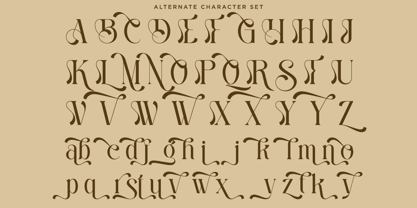 ALTERNATE CHARACTER SET
A B C D E F G H H I J
K L M N O P Q R S T U
V V W W X X Y Y Z
a b c d i g h i j k l m n o
p q r s t u v w x v z t k y